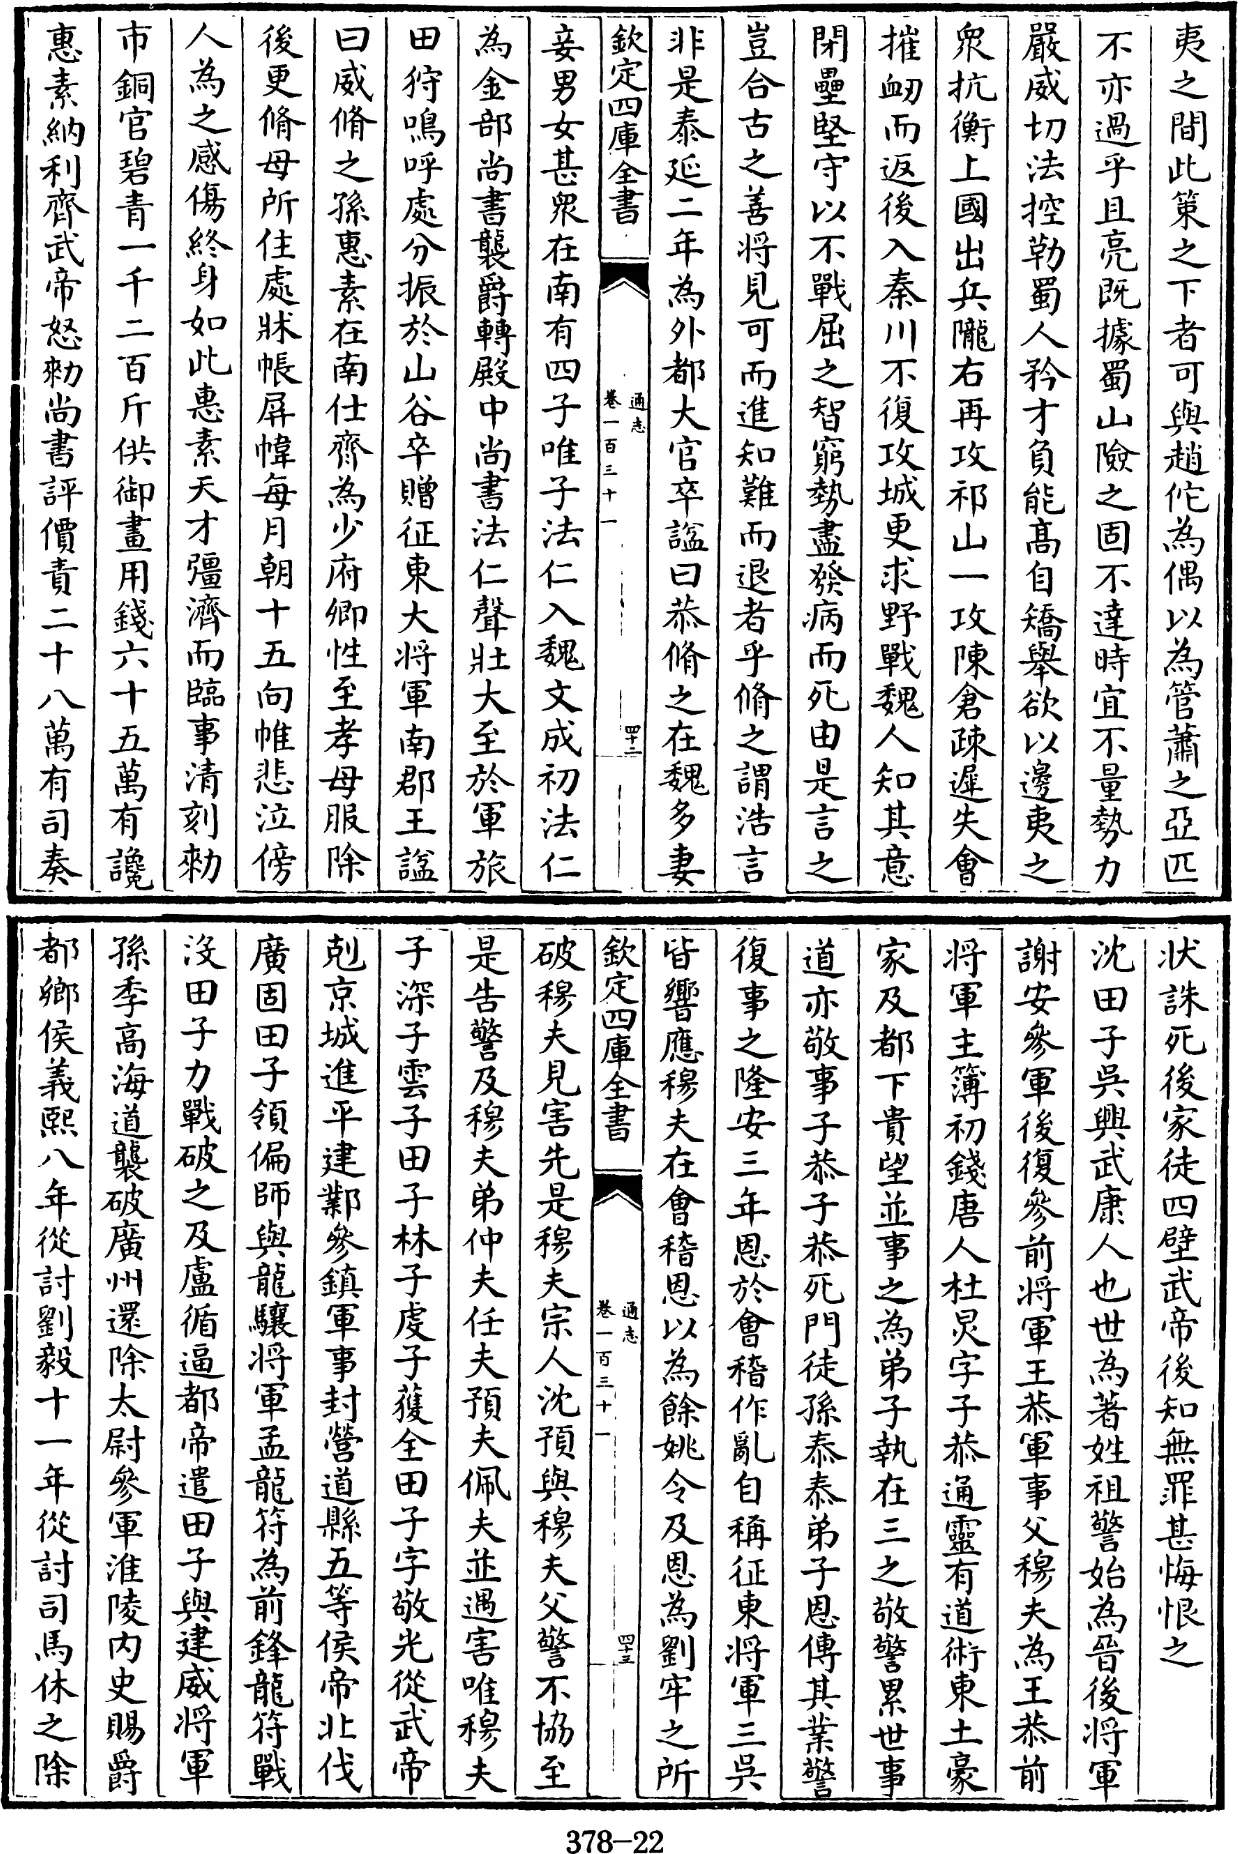 夷之間此策之下者可與趙佗為偶以為管蕭之亞匹
不亦過乎且亮既據蜀山險之固不達時宜不量勢力
嚴威切法控勒蜀人矜才負能髙自矯舉欲以邊夷之
衆抗衡上國出兵隴右再攻祁山一攻陳倉疎遲失會
摧衂而返後入秦川不復攻城更求野戰魏人知其意
閉壘堅守以不戰屈之智窮勢盡發病而死由是言之
豈合古之善将見可而進知難而退者乎脩之謂浩言
非是泰延二年為外都大官卒諡曰恭脩之在魏多妻
欽定四庫全書
通志
卷一百三十一
四十二
妾男女甚衆在南有四子唯子法仁入魏文成初法仁
為金部尚書襲爵轉殿中尚書法仁聲壯大至於軍旅
田狩鳴呼處分振於山谷卒贈征東大将軍南郡王諡
曰威脩之孫惠素在南仕齊為少府卿性至孝母服除
後更脩母所住處牀帳屏幃每月朝十五向帷悲泣傍
人為之感傷終身如此惠素天才彊濟而臨事清刻勑
市銅官碧青一千二百斤供御畫用錢六十五萬有讒
惠素納利齊武帝怒勑尚書評價責二十八萬有司奏
狀誅死後家徒四壁武帝後知無罪甚悔恨之
沈田子吳興武康人也世為著姓祖警始為晉後将軍
謝安參軍後復參前将軍王恭軍事父穆夫為王恭前
将軍主簿初錢唐人杜炅字子恭通靈有道術東土豪
家及都下貴望並事之為弟子執在三之敬警累世事
道亦敬事子恭子恭死門徒孫泰泰弟子恩傳其業警
復事之隆安三年恩於會稽作亂自稱征東将軍三吳
皆響應穆夫在會稽恩以為餘姚令及恩為劉牢之所
欽定四庫全書
通志
卷一百三十一
四十三
破穆夫見害先是穆夫宗人沈預與穆夫父警不協至
是告警及穆夫弟仲夫任夫預夫佩夫並遇害唯穆夫
子深子雲子田子林子虔子獲全田子字敬光從武帝
剋京城進平建鄴參鎮軍事封營道縣五等侯帝北伐
廣固田子領偏師與龍驤将軍孟龍符為前鋒龍符戰
沒田子力戰破之及盧循逼都帝遣田子與建威将軍
孫季高海道襲破廣州還除太尉參軍淮陵内史賜爵
都鄉侯義熙八年從討劉毅十一年從討司馬休之除
378-22